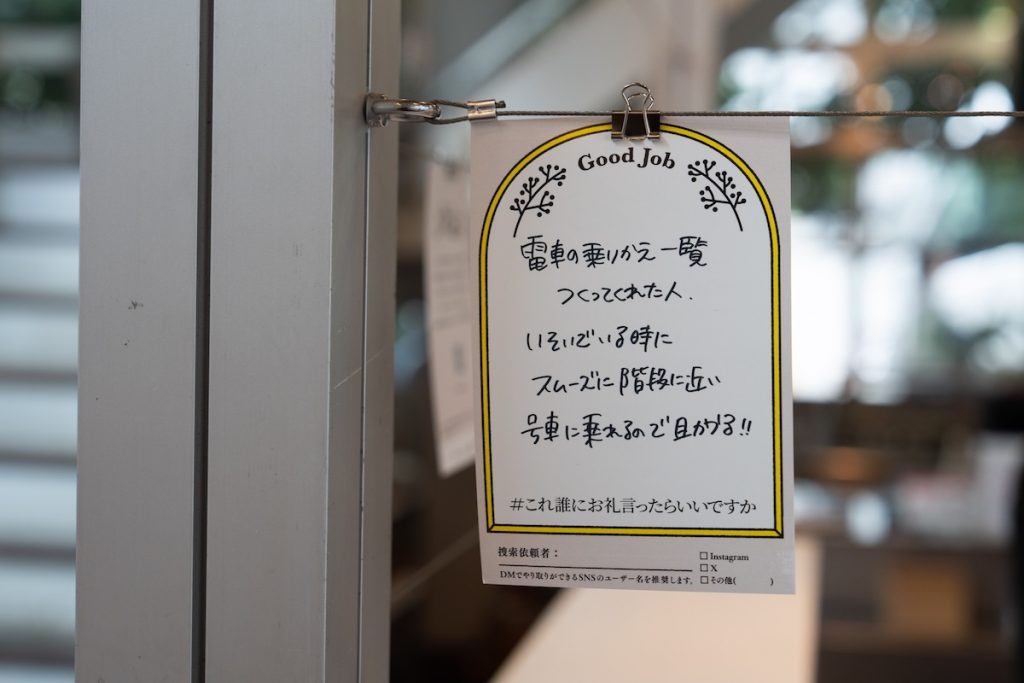 Good Job
電車の乗りかえ一覧
つくってくれた人.
いそいでいる時に
スムーズに階段に近い
号車に乗れるので助かる!!
#これ誰にお礼言ったらいいですか
捜索依頼者：
DMでやり取りができるSNSのユーザー名を推奨します。
□ Instagram
□ X
□ その他(　　)